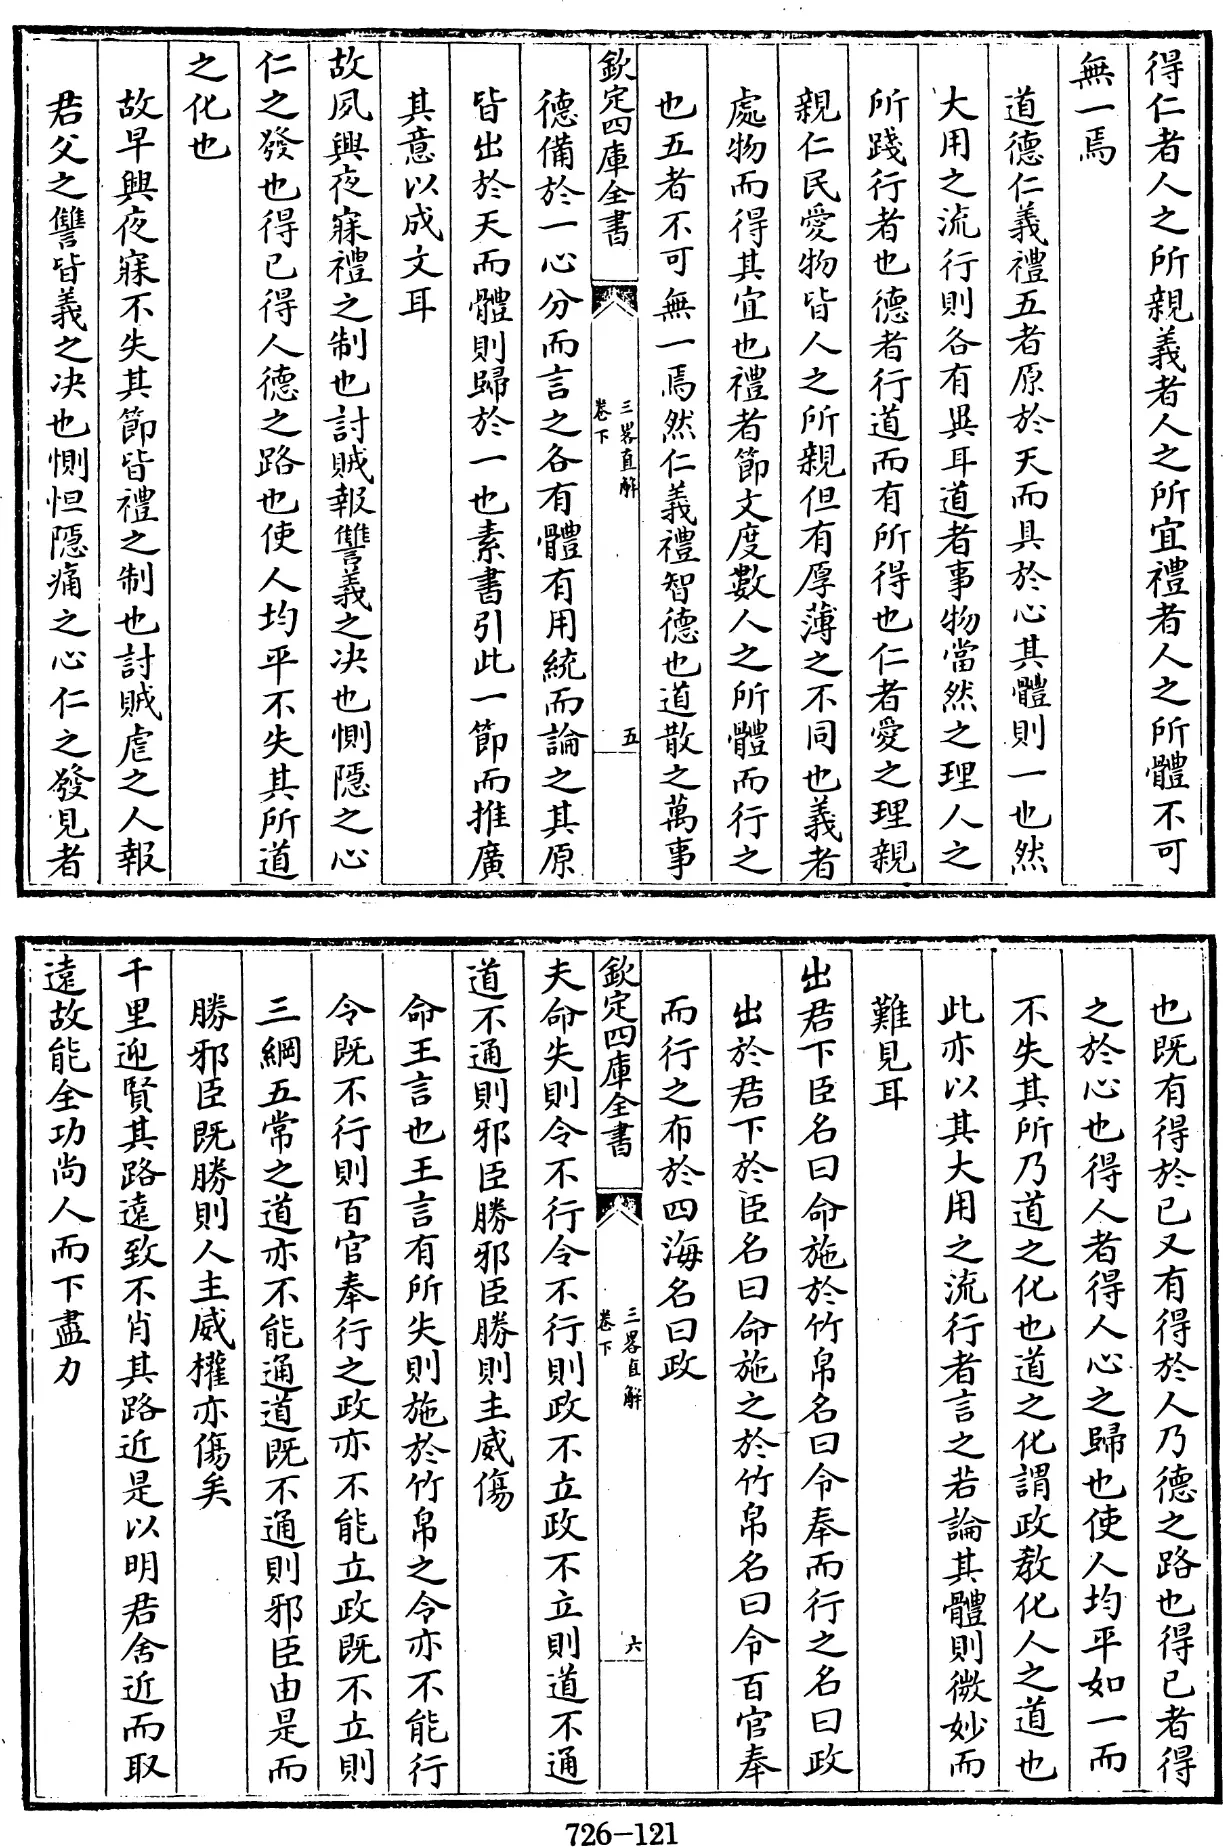 得仁者人之所親義者人之所宜禮者人之所體不可
無一焉
道德仁義禮五者原於天而具於心其體則一也然
大用之流行則各有異耳道者事物當然之理人之
所踐行者也德者行道而有所得也仁者愛之理親
親仁民愛物皆人之所親但有厚薄之不同也義者
處物而得其宜也禮者節文度數人之所體而行之
也五者不可無一焉然仁義禮智德也道散之萬事
欽定四庫全書
三畧直解
卷下
五
德備於一心分而言之各有體有用統而論之其原
皆出於天而體則歸於一也素書引此一節而推廣
其意以成文耳
故夙興夜寐禮之制也討賊報讐義之决也惻隱之心
仁之發也得已得人德之路也使人均平不失其所道
之化也
故早興夜寐不失其節皆禮之制也討賊虐之人報
君父之讐皆義之决也惻怛隱痛之心仁之發見者
也既有得於已又有得於人乃德之路也得已者得
之於心也得人者得人心之歸也使人均平如一而
不失其所乃道之化也道之化謂政教化人之道也
此亦以其大用之流行者言之若論其體則微妙而
難見耳
出君下臣名曰命施於竹帛名曰令奉而行之名曰政
出於君下於臣名曰命施之於竹帛名曰令百官奉
而行之布於四海名曰政
欽定四庫全書
三畧直解
卷下
六
夫命失則令不行令不行則政不立政不立則道不通
道不通則邪臣勝邪臣勝則主威傷
命王言也王言有所失則施於竹帛之令亦不能行
令既不行則百官奉行之政亦不能立政既不立則
三綱五常之道亦不能通道既不通則邪臣由是而
勝邪臣既勝則人主威權亦傷矣
千里迎賢其路遠致不肖其路近是以明君舍近而取
遠故能全功尚人而下盡力
726-121